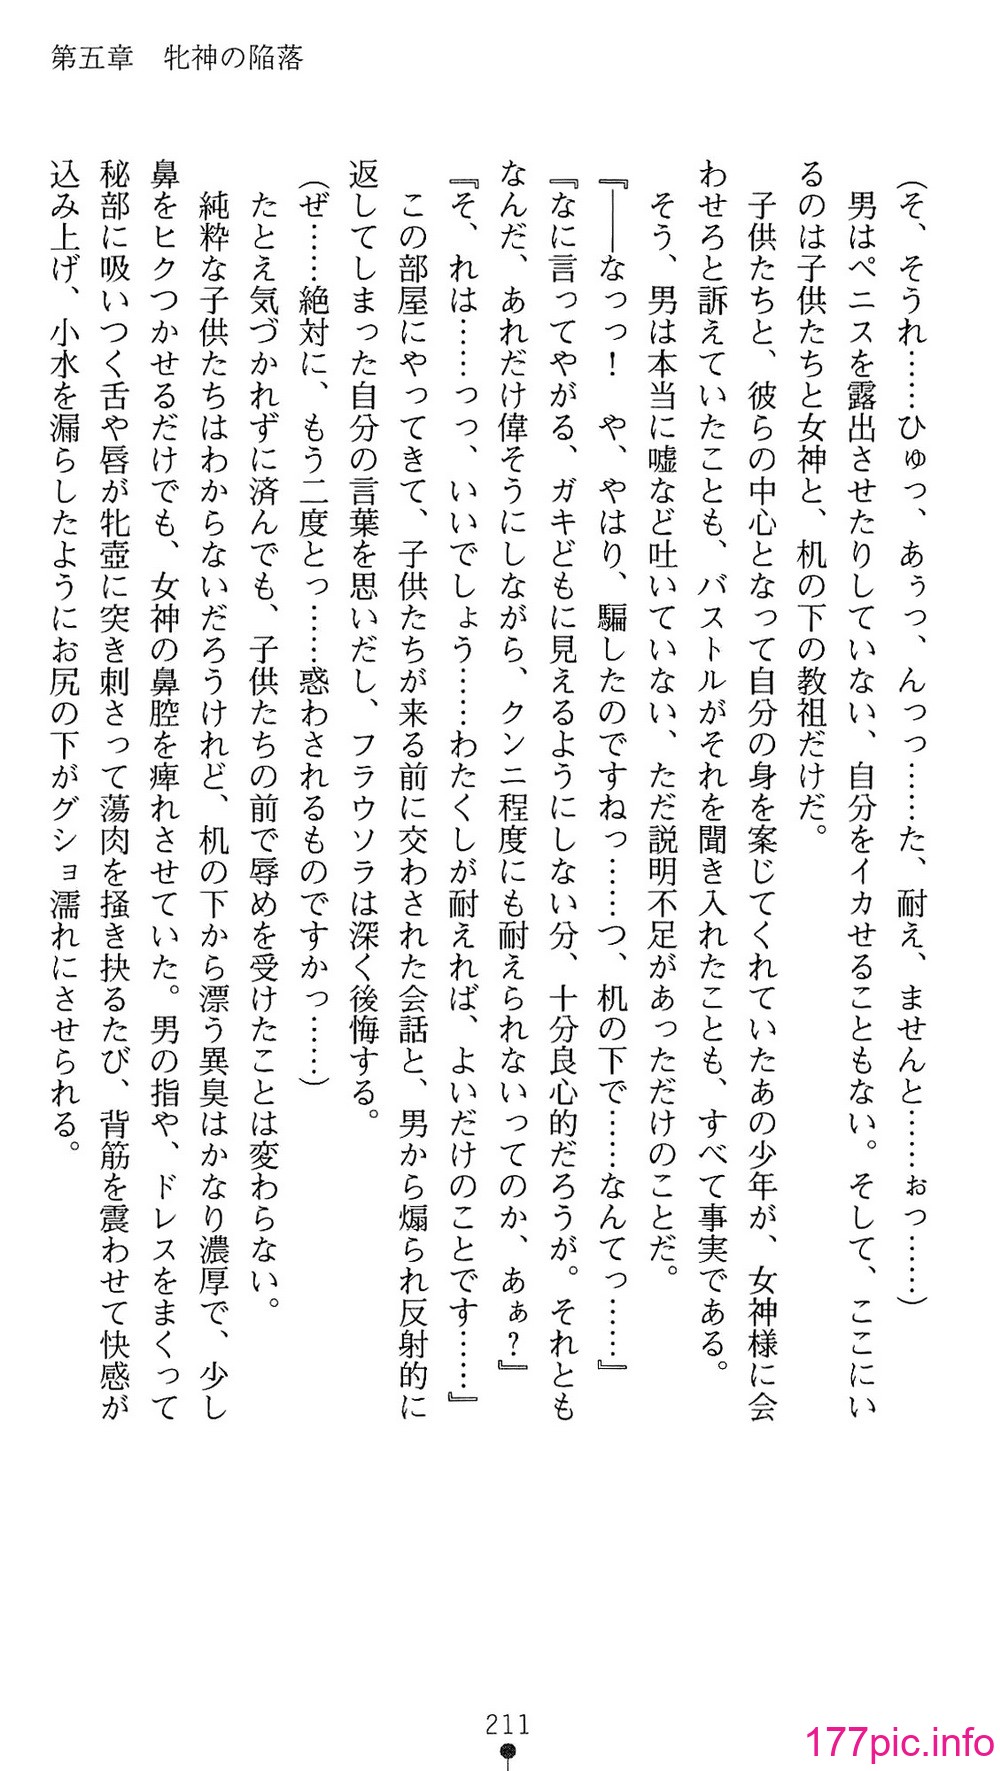 第五章　牝神の陥落
（そ、そうれ……ひゅっ、あぅっ、んっっ……た、耐え、ませんと……ぉっ……）
　男はペニスを露出させたりしていない、自分をイカせることもない。そして、ここにい
るのは子供たちと女神と、机の下の教祖だけだ。
　子供たちと、彼らの中心となって自分の身を案じてくれていたあの少年が、女神様に会
わせろと訴えていたことも、バストルがそれを聞き入れたことも、すべて事実である。
　そう、男は本当に嘘など吐いていない、ただ説明不足があっただけのことだ。
『――なっっ！　や、やはり、騙したのですねっ……つ、机の下で……なんてっ……』
『なに言ってやがる、ガキどもに見えるようにしない分、十分良心的だろうが。それとも
なんだ、あれだけ偉そうにしながら、クンニ程度にも耐えられないってのか、あぁ？』
『そ、れは……っっ、いいでしょう……わたくしが耐えれば、よいだけのことです……』
　この部屋にやってきて、子供たちが来る前に交わされた会話と、男から煽られ反射的に
返してしまった自分の言葉を思いだし、フラウソラは深く後悔する。
（ぜ……絶対に、もう二度とっ……惑わされるものですかっ……）
　たとえ気づかれずに済んでも、子供たちの前で辱めを受けたことは変わらない。
　純粋な子供たちはわからないだろうけれど、机の下から漂う異臭はかなり濃厚で、少し
鼻をヒクつかせるだけでも、女神の鼻腔を痺れさせていた。男の指や、ドレスをまくって
秘部に吸いつく舌や唇が牝壺に突き刺さって蕩肉を掻き抉るたび、背筋を震わせて快感が
込み上げ、小水を漏らしたようにお尻の下がグショ濡れにさせられる。
211
177pic.info